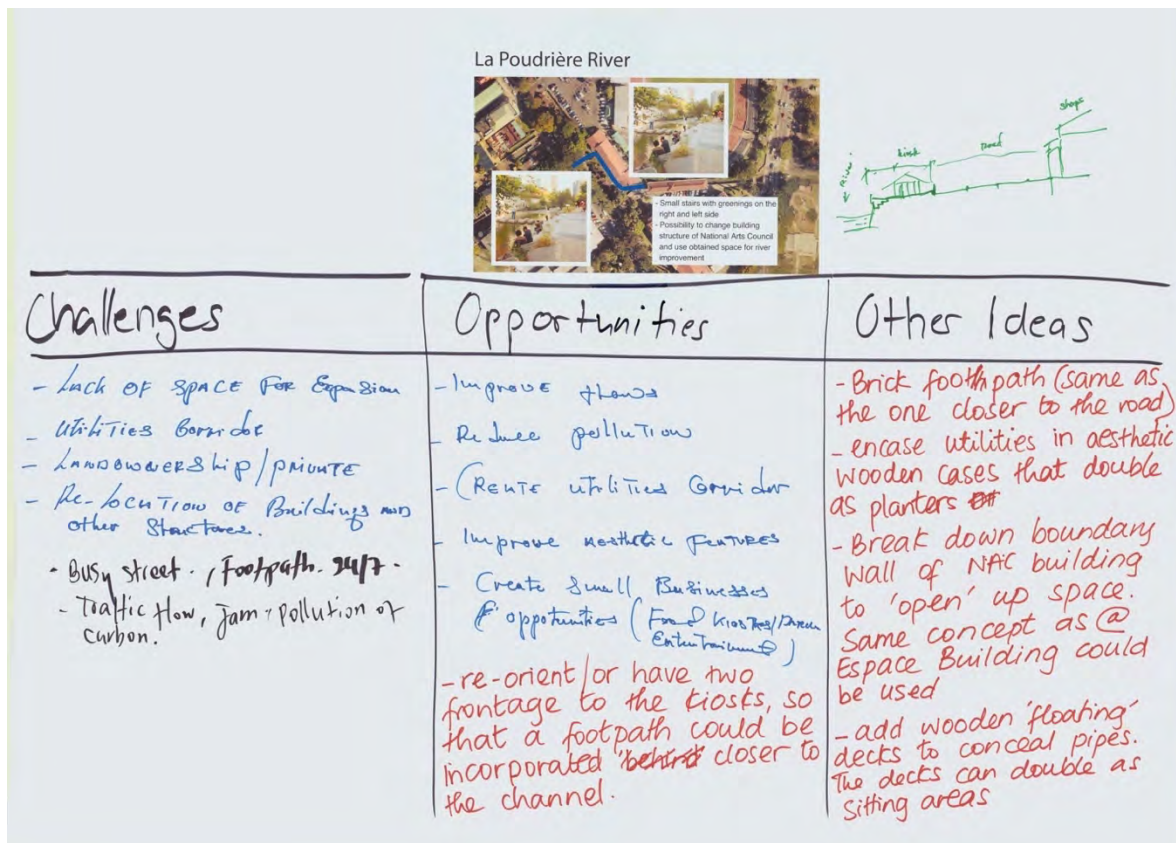 La Poudrière River
- Small stairs with greenings on the
right and left side
- Possibility to change building
structure of National Arts Council
and use obtained space for river
improvement
River
kiosk
road
shops
Challenges
- Lack of space for Expansion
- Utilities Corridor
- Landownership/private
- Re-location of Buildings and
other Structures.
- Busy street. , Footpath. 24/7 -
- Traffic flow, Jam, pollution of
carbon.
Opportunities
- Improve flows
- Reduce pollution
- Create utilities Corridor
- Improve aesthetic features
- Create Small Businesses
opportunities (Food Kiosks/
Entertainment)
- re-orient/or have two
frontage to the kiosks, so
that a footpath could be
incorporated closer to
the channel.
Other Ideas
- Brick footpath (same as
the one closer to the road)
- encase utilities in aesthetic
wooden cases that double
as planters
- Break down boundary
wall of NAC building
to 'open' up space.
Same concept as @
Espace Building could
be used
- add wooden 'floating'
decks to conceal pipes.
The decks can double as
sitting areas